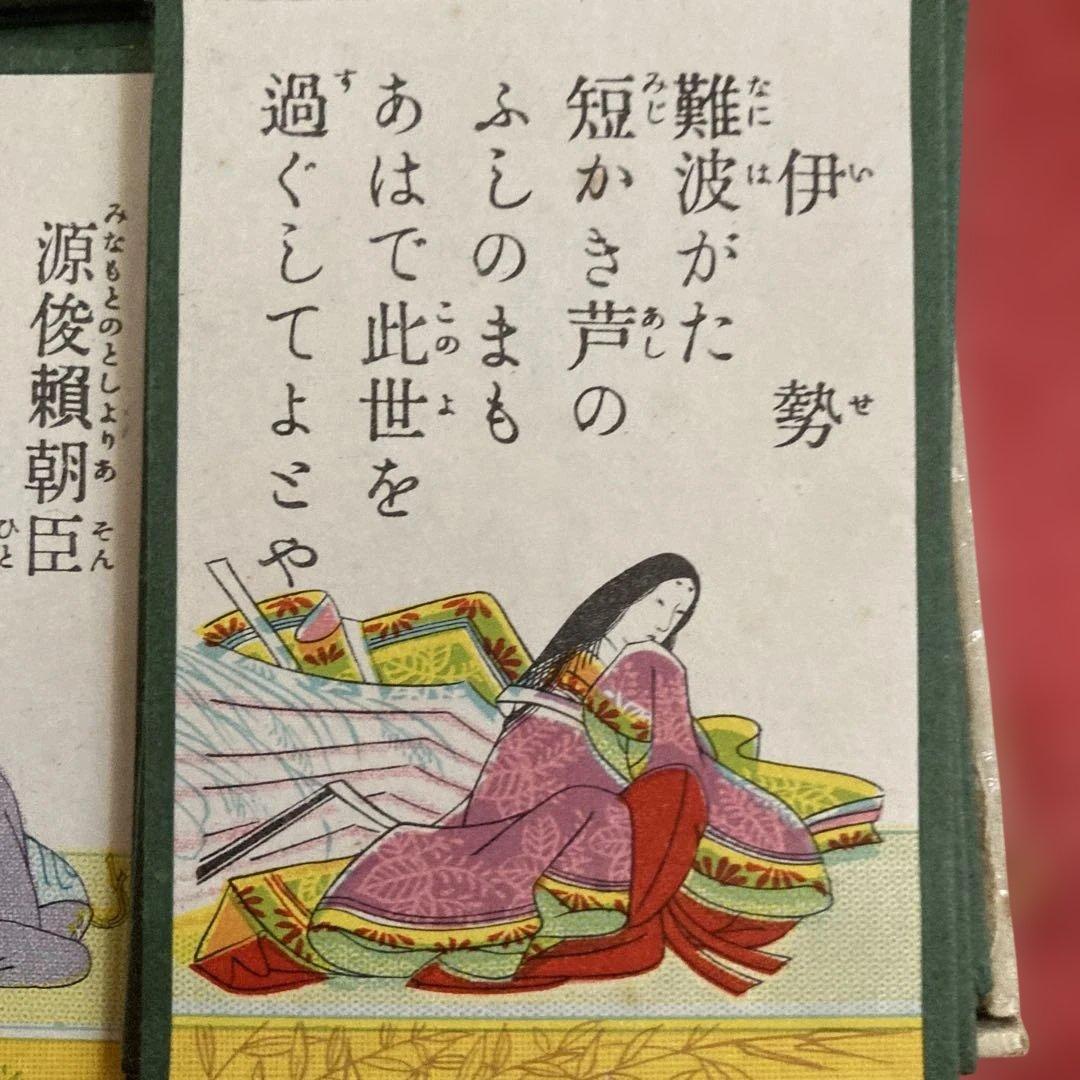 伊勢
難波がた
短かき芦の
ふしのまも
あはで此世を
過ぐしてよとや
源俊頼朝臣